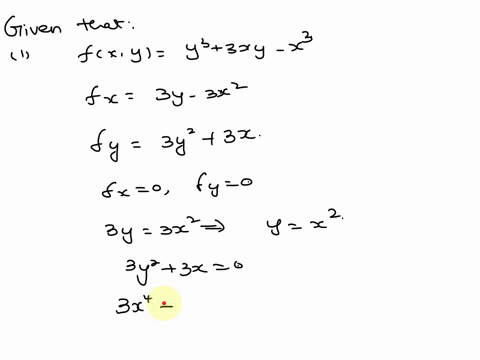 Given that:
(1) f(x,y) = y³+3xy - x³
fx = 3y - 3x²
fy = 3y² + 3x.
fx = 0, fy = 0
3y = 3x² ⇒ y = x².
3y² + 3x = 0
3x⁴ =